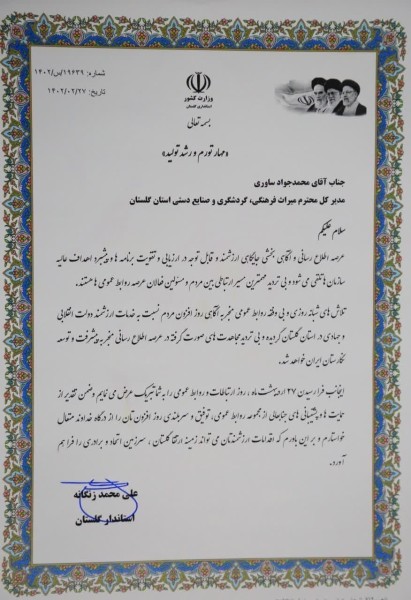 شماره: ۱۹۶۳۹/س/۱۴۰۲
تاریخ: ۱۴۰۲/۰۲/۲۷
وزارت کشور
استانداری گلستان
بسمه تعالی
«مهار تورم و رشد تولید»
جناب آقای محمدجواد ساوری
مدیر کل محترم میراث فرهنگی، گردشگری و صنایع دستی استان گلستان
سلام علیکم
عرصه اطلاع رسانی و آگاهی بخشی جایگاهی ارزشمند و قابل توجه در ارزیابی و تقویت برنامه ها و پیشبرد اهداف عالیه
سازمان ها تلقی می شود و بی تردید مهمترین مسیر ارتباطی بین مردم و مسئولین فعالان عرصه روابط عمومی هستند.
تلاش های شبانه روزی و بی وقفه روابط عمومی منجر به آگاهی روز افزون مردم نسبت به خدمات ارزشمند دولت انقلابی
و جهادی در استان گلستان گردیده و بی تردید مجاهدت های صورت گرفته در عرصه اطلاع رسانی منجر به پیشرفت و توسعه
نگارستان ایران خواهد شد.
اینجانب فرا رسیدن ۲۷ اردیبهشت ماه، روز ارتباطات و روابط عمومی را به شما تبریک عرض می نمایم و ضمن تقدیر از
حمایت ها و پشتیبانی های جنابعالی از مجموعه روابط عمومی، توفیق و سربلندی روز افزونتان را از درگاه خداوند متعال
خواستارم و بر این باورم که اقدامات ارزشمندتان می تواند زمینه ارتقا گلستان، سرزمین اتحاد و برادری را فراهم
آورد.
علی محمد زنگانه
استاندار گلستان